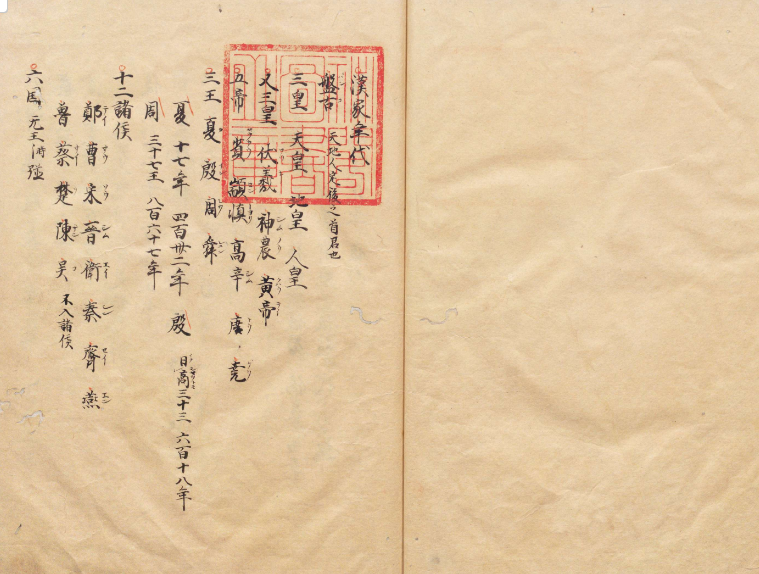 漢家年代
盤古 天地人定後之首君也
三皇 天皇 地皇 人皇
又三皇 伏羲 神農 黄帝
五帝 黄 顓頊 高辛 唐 堯
三王 夏 殷 周 舜
夏 十七年 四百卅二年 殷 日商 三十三 六百十八年
周 三十七王 八百六十七年
十二諸侯
鄭 曹 宋 晉 衞 秦 齊 燕
魯 蔡 楚 陳 吴 不入諸侯
六国 元王